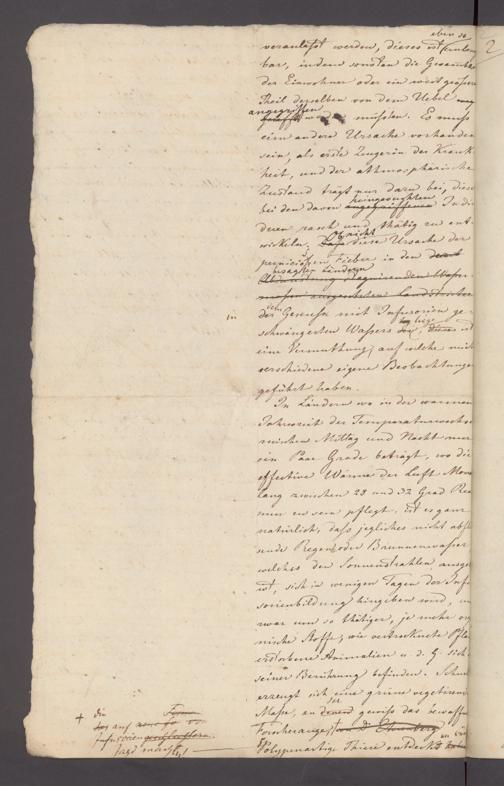 eben so
veranlaßt werden, dieses ist
bar, indem sonsten die Gesamth
der Einwohner oder ein weit großer
Theil derselben von dem Uebel
angegriffen
werden müßten. Es muß
eine andere Ursache vorhande
sein, als erste Zeugerin der Krank
heit, und der athmosphärische
Zustand trägt nur dazu bei, diese
bei den davon angegriffenen Indi
duen rasch und thätig zu ent
wickeln. Daß diese Ursache der
perniciösen Fieber in den
besagten Ländern
in dem Genuße mit Infusorien ge
schwängerten Wassers liege, ist
eine Vermuthung, auf welche mich
verschiedene eigene Beobachtunge
geführt haben.
In Ländern wo in der warmen
Jahreszeit der Temperaturwechse
zwischen Mittag und Nacht nur
ein Paar Grade beträgt, wo die
effective Wärme der Luft Mona
lang zwischen 28 und 32 Grad Rea
mur zu sein pflegt, ist es ganz
natürlich, daß jegliches nicht abfli
ßende Regen oder Brunnenwasser
welches der Sonnenstrahlen ausge
ist, sich in wenigen Tagen der Inf
sorienbildung hingeben wird, un
zwar um so thätiger, je mehr or
nische Stoffe, wie vertrocknete Pfla
erstorbene Animalien u. d. G. sich
seiner Berührung befinden. Schnell
erzeugt sich eine grüne vegetirend
Masse, an der gewiß das bewaffn
Forscherauge
Polypenartige Thiere entdeckt
+ die
auf
Infusorien
Jagd macht
2